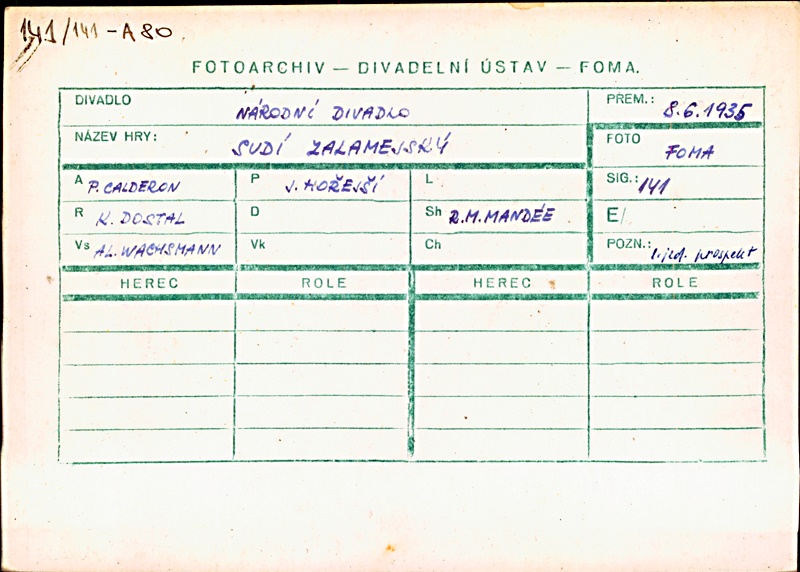 141/141-A80
FOTOARCHIV — DIVADELNÍ ÚSTAV — FOMA.
DIVADLO NÁRODNÍ DIVADLO PREM.: 8.6.1935
NÁZEV HRY: SUDÍ ZALAMEJSKÝ FOTO FOMA
A P. CALDERON P J. HOŘEJŠÍ L SIG.: 141
R K. DOSTAL D Sh R.M. MANDÉE E/
Vs AL. WACHSMANN Vk Ch POZN.: 1.jed. prospekt
HEREC ROLE HEREC ROLE